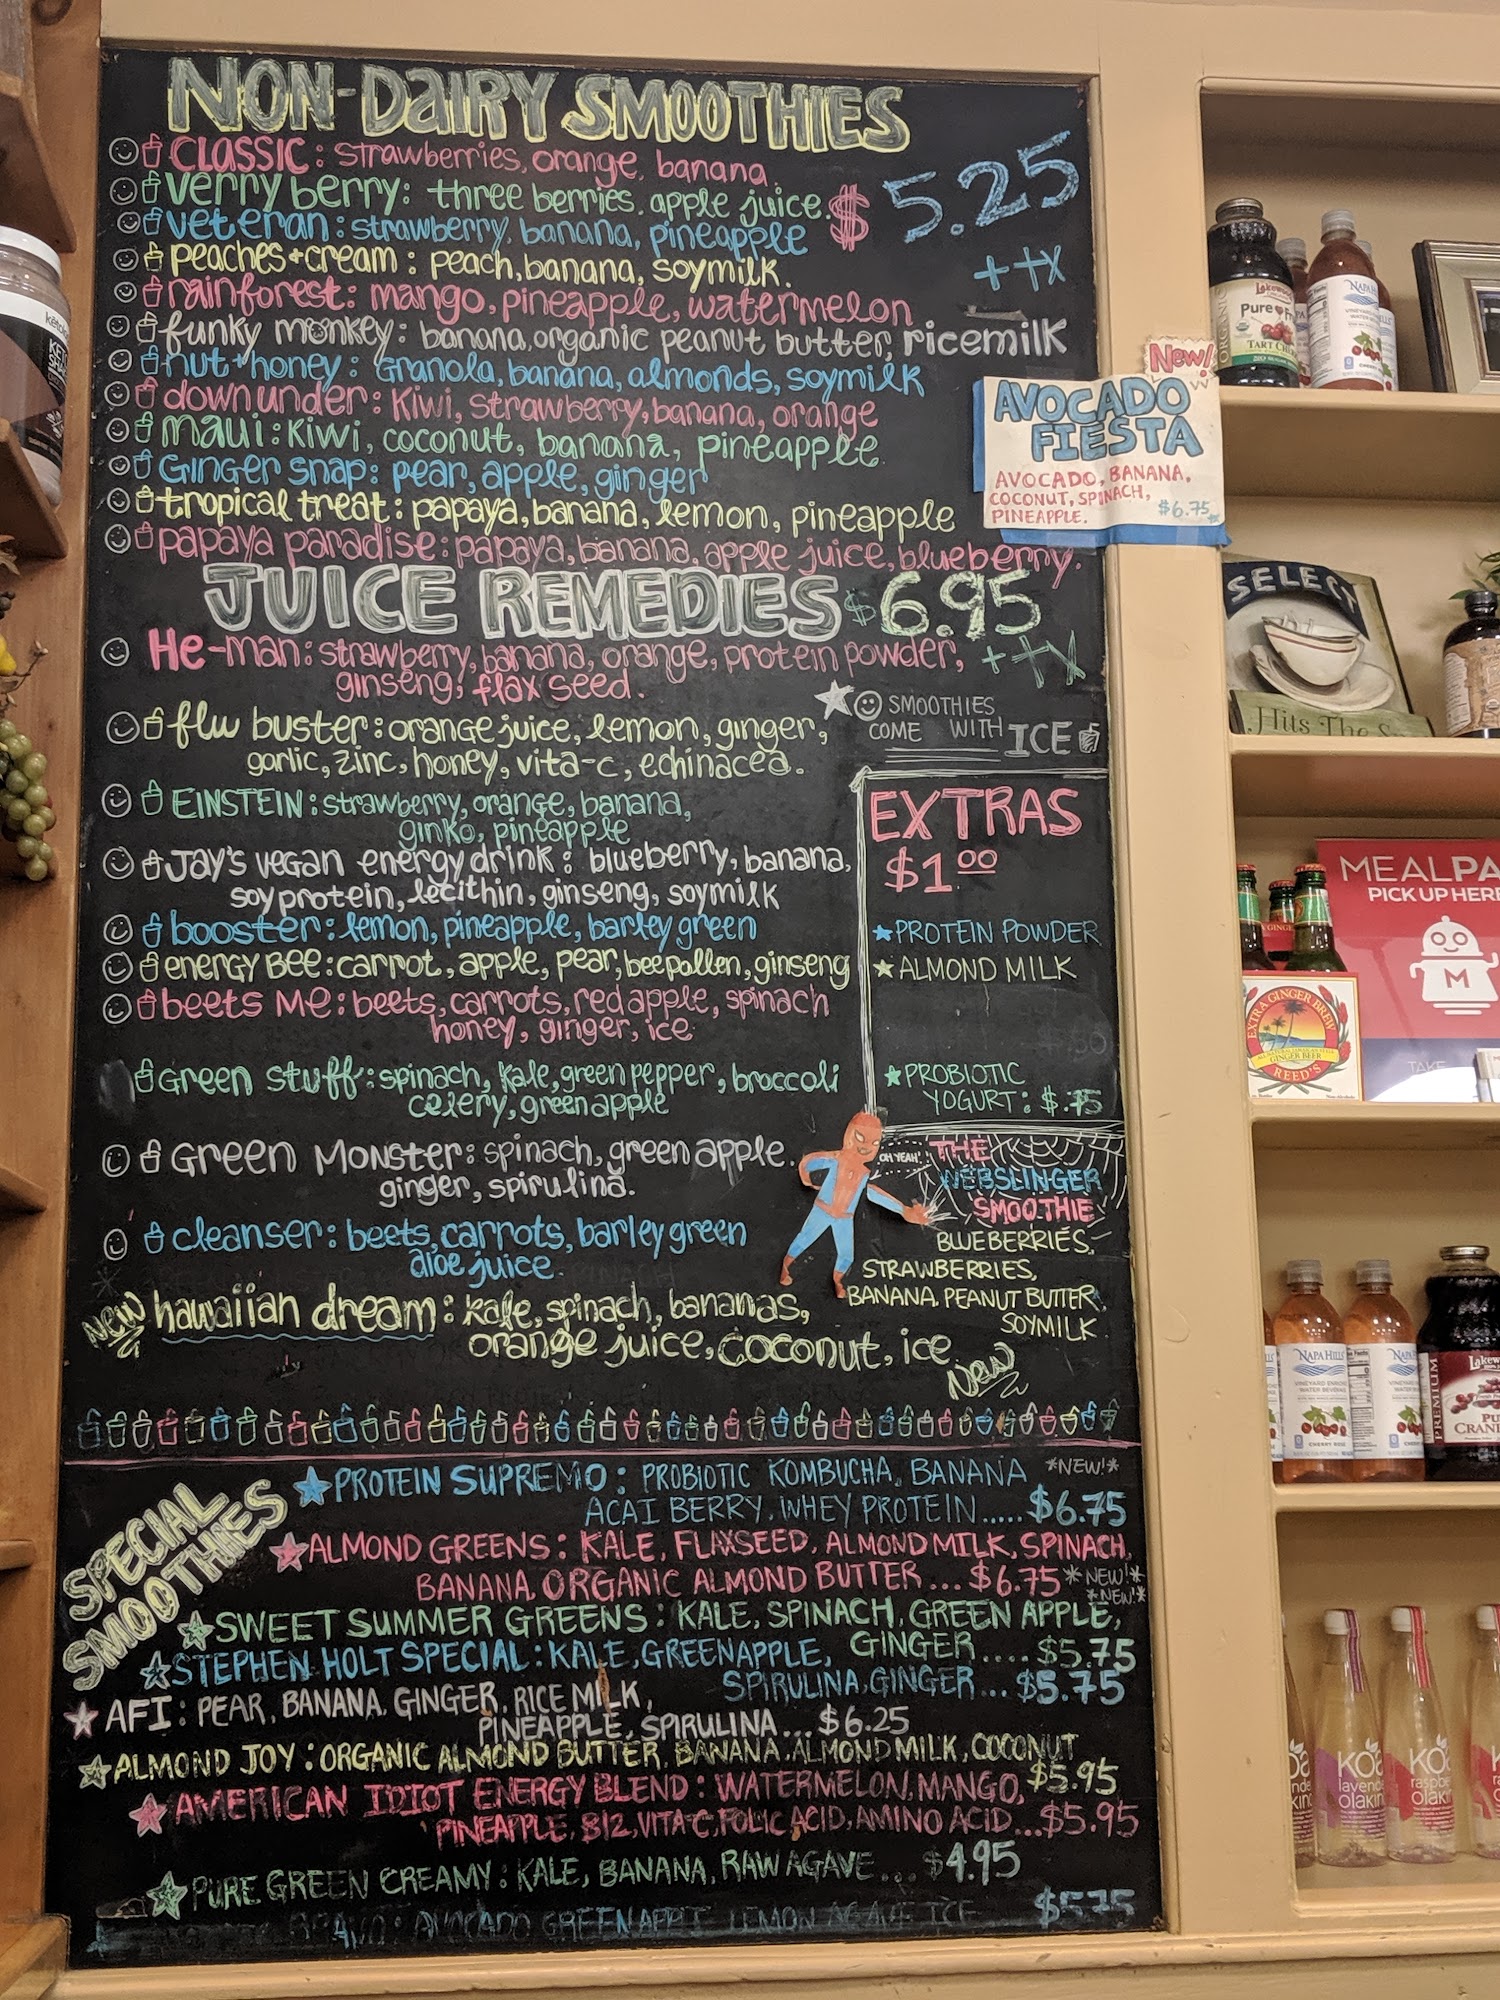 NON-DAIRY SMOOTHIES
CLASSIC: strawberries, orange, banana
verry berry: three berries, apple juice.
$5.25
+tx
veteran: strawberry, banana, pineapple
peaches+cream: peach, banana, soymilk.
rainforest: mango, pineapple, watermelon
funky monkey: banana, organic peanut butter, ricemilk
nut+honey: Granola, banana, almonds, soymilk
down under: Kiwi, strawberry, banana, orange
maui: Kiwi, coconut, banana, pineapple
GINGER snap: pear, apple, ginger
tropical treat: papaya, banana, lemon, pineapple
papaya paradise: papaya, banana, apple juice, blueberry.
New!
AVOCADO
FIESTA
AVOCADO, BANANA,
COCONUT, SPINACH,
PINEAPPLE. $6.75
JUICE REMEDIES $6.95
+tx
He-man: strawberry, banana, orange, protein powder,
ginseng, flax seed.
SMOOTHIES
COME WITH ICE
flu buster: orange juice, lemon, ginger,
garlic, zinc, honey, vita-c, echinacea.
EINSTEIN: strawberry, orange, banana,
ginko, pineapple
Jay's vegan energy drink: blueberry, banana,
soy protein, lecithin, ginseng, soymilk
booster: lemon, pineapple, barley green
energy Bee: carrot, apple, pear, bee pollen, ginseng
beets Me: beets, carrots, red apple, spinach
honey, ginger, ice
Green stuff: spinach, kale, green pepper, broccoli
celery, green apple
Green Monster: spinach, green apple.
ginger, spirulina.
cleanser: beets, carrots, barley green
aloe juice
New hawaiian dream: kale, spinach, bananas,
orange juice, coconut, ice
New
EXTRAS
$1.00
PROTEIN POWDER
ALMOND MILK
PROBIOTIC
YOGURT: $.75
OH YEAH!
THE
WEBSLINGER
SMOOTHIE
BLUEBERRIES,
STRAWBERRIES,
BANANA, PEANUT BUTTER,
SOYMILK
SPECIAL
SMOOTHIES
PROTEIN SUPREMO: PROBIOTIC KOMBUCHA, BANANA *NEW!*
ACAI BERRY, WHEY PROTEIN..... $6.75
ALMOND GREENS: KALE, FLAXSEED, ALMOND MILK, SPINACH,
BANANA, ORGANIC ALMOND BUTTER... $6.75 *NEW!*
*NEW!*
SWEET SUMMER GREENS: KALE, SPINACH, GREEN APPLE,
GINGER.... $5.75
STEPHEN HOLT SPECIAL: KALE, GREEN APPLE,
SPIRULINA, GINGER... $5.75
AFI: PEAR, BANANA, GINGER, RICE MILK,
PINEAPPLE, SPIRULINA... $6.25
ALMOND JOY: ORGANIC ALMOND BUTTER, BANANA, ALMOND MILK, COCONUT
$5.95
AMERICAN IDIOT ENERGY BLEND: WATERMELON, MANGO,
PINEAPPLE, B12, VITA-C, FOLIC ACID, AMINO ACID... $5.95
PURE GREEN CREAMY: KALE, BANANA, RAW AGAVE... $4.95
AVOCADO GREEN APPLE LEMON AGAVE ICE $5.75
ORGANIC
Lakewood
Pure Fruit
TART CHERRY
NAPA HILLS
SELECT
Hits The
MEALPA
PICK UP HERE
M
TAKE
EXTRA GINGER BREW
ALL NATURAL JAMAICAN STYLE
GINGER BEER
REED'S
NAPA HILLS
VINEYARD ENRICHED
WATER BEVERAGE
CHERRY ROSE
NAPA HILLS
PREMIUM
PU
CRAN
lavende
raspbe